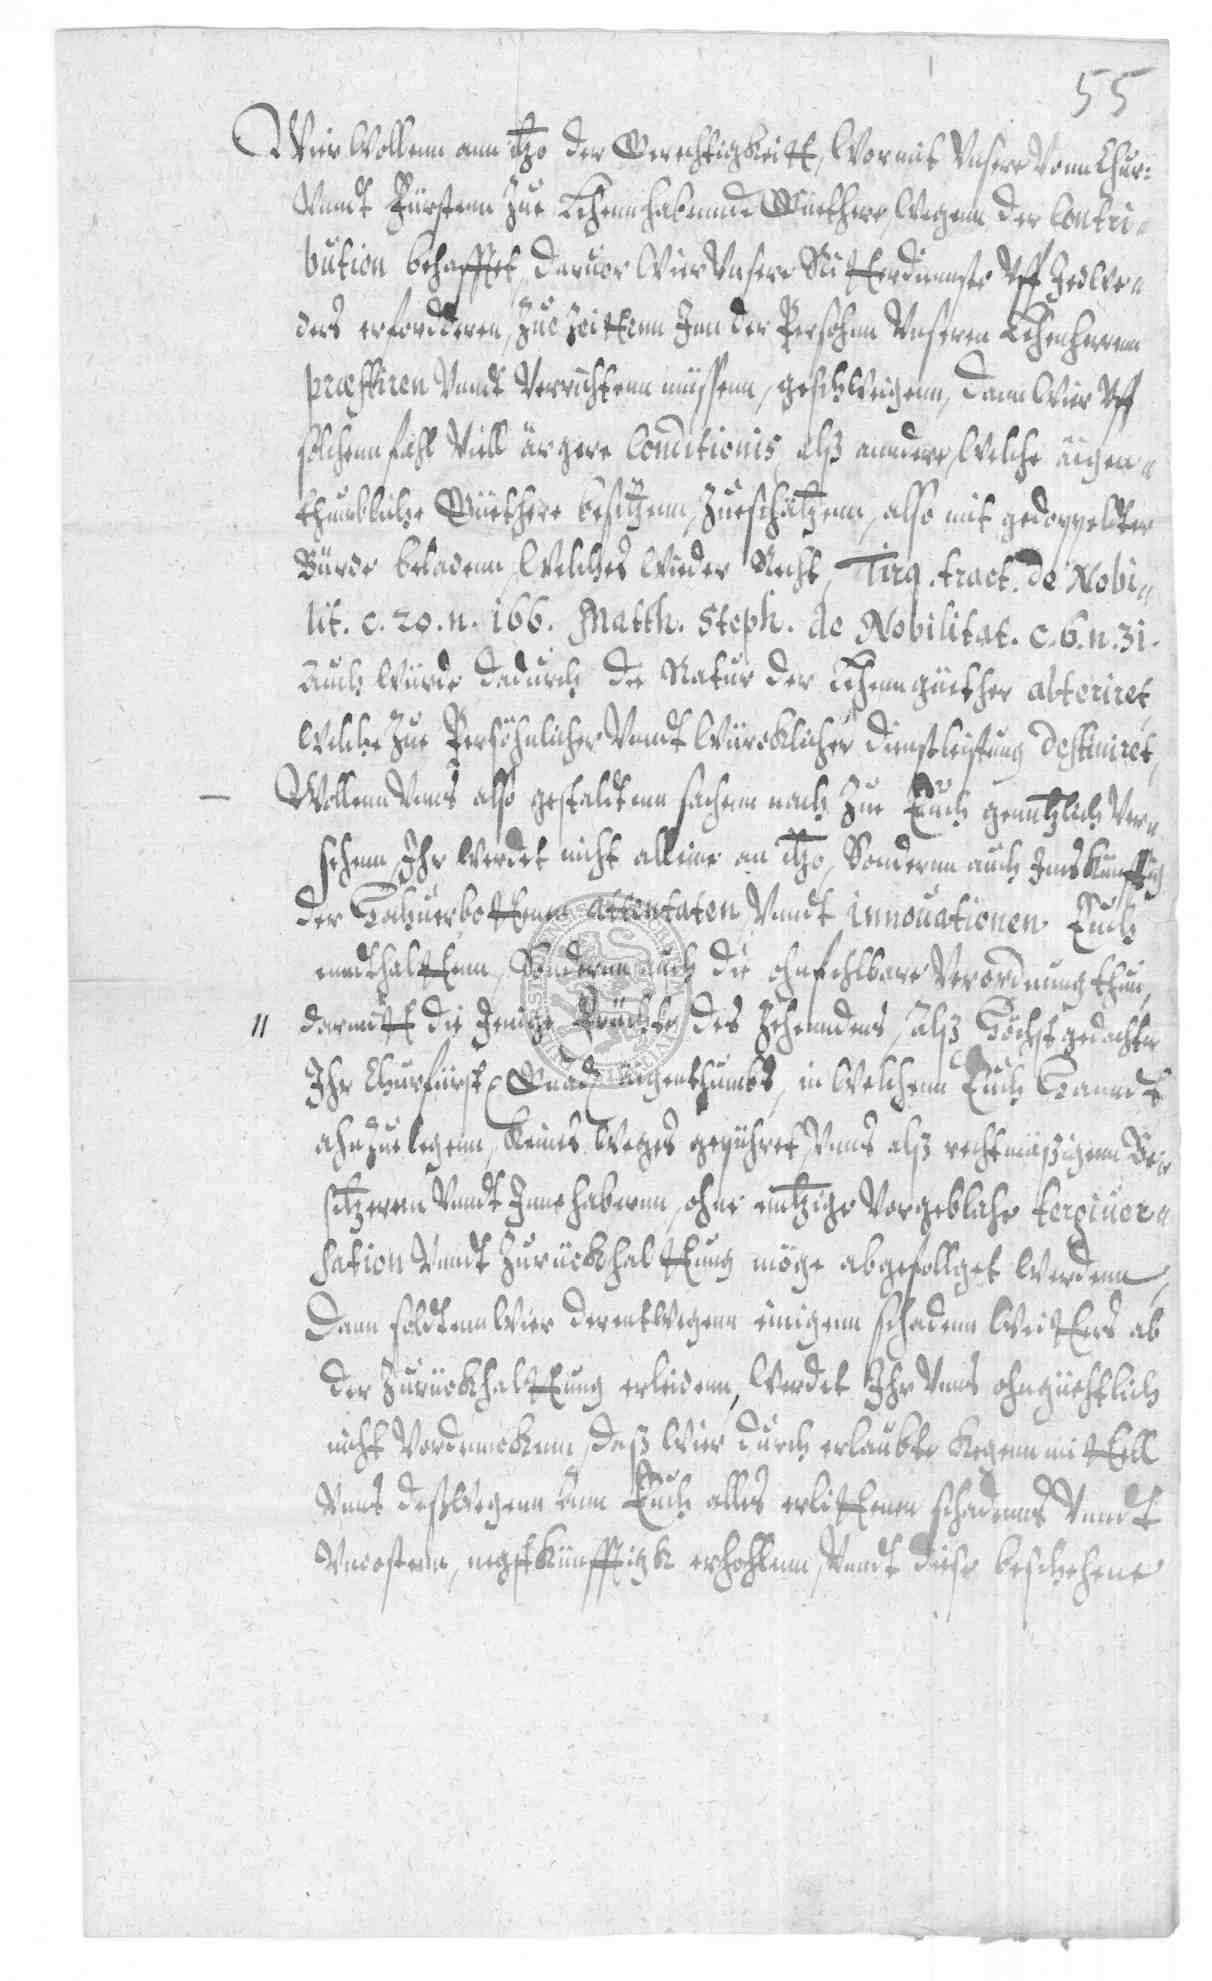 55
Wier Wollenn ann itzo der Gerechtigkeitt, Wormit Unsere Vonn Chur:
Vnndt Fürstenn Zue Lehenn habennde Güethere, Wegenn der Contri-
bution behafftet, daruor Wier Unsere Ritterdiennste Uff Jedwe-
ders erforderen, Zue Zeittenn Inn der Persohn Unseren Lehenherrenn
præstiren Vnndt Verrichtenn müssenn, geschweigenn, dann Wier Uff
solchenn fahl Viell ärgere Conditionis, alß anndere, Welche äigen-
thumbliche Güethere besitzenn, Zueschätzenn, also mit gedoppeldter
Bürde beladenn, Welches Wieder Recht, Tirq. tract. de Nobi-
lit. c. 20. n. 166. Matth. Steph. de Nobilitat. c. 6. n. 31.
Auch Würde dadurch die Natur der Lehenngüether alteriret,
Welche Zue Persöhnlicher Vnndt Würcklicher dienstleistung destiniret,
Wollenn Unns also gestaldtenn sachenn nach Zue Euch genntzlich Ver-
sehenn, Ihr Werdet nicht alleine an itzo, Sonderenn auch Inns Künfftig
der Hochuerbottenen attentaten Vnndt innouationen Euch
enndthalttenn, Sonderenn auch die ohnfehlbare Verordnung thun,
darmitt die Jenige Früchte des Zehenndens, alß Höchstgedachter
Ihr Churfürstl. Gnad. eigenthumbs, in Welchenn Euch Hanndt
ahnzuelegenn, Keines Weges gepühret, Unns alß rechtmäßigenn Be-
sitzeren Vnndt Innehaberenn, ohne eintzige Vorgebliche tergiuer-
sation Vnndt Zurückhalttung möge abgefollget Werdenn,
Dann soldtenn Wier derentwegenn einigenn schadenn Weitters ab
der Zurückhalttung erleidenn, Werdet Ihr Unns ohngüethlich
nicht Vordennckenn, daß Wier durch erlaubte Kegennmittell
Unns deßwegenn Ann Euch alles erlittenen schadenns Vnndt
Uncostenn, negstkünfftigk erhohlenn, Vnndt diese beschehene